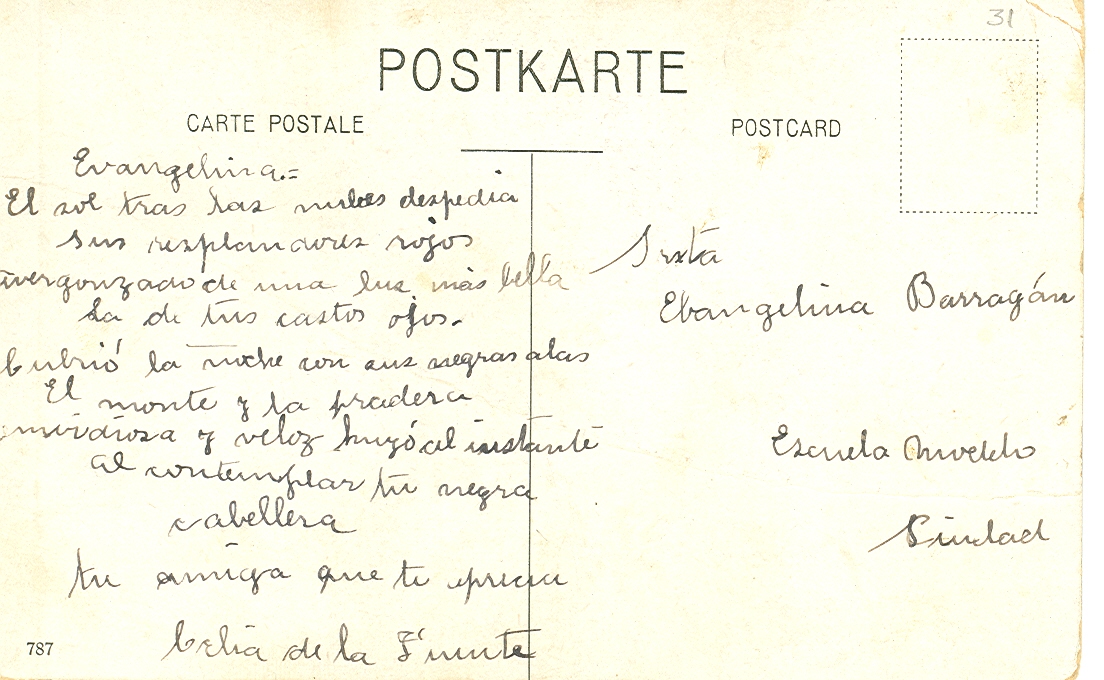 31
POSTKARTE
CARTE POSTALE
POSTCARD
Evangelina.=
El sol tras las nubes despedia
sus resplandores rojos
avergonzado de una luz más bella
La de tus castos ojos.
Cubrió la noche con sus negras alas
El monte y la pradera
envidiosa y veloz huyó al instante
al contemplar tu negra
cabellera
tu amiga que te aprecia
Celia de la Fuente
787
Srta
Evangelina Barragán
Escuela Modelo
Ciudad